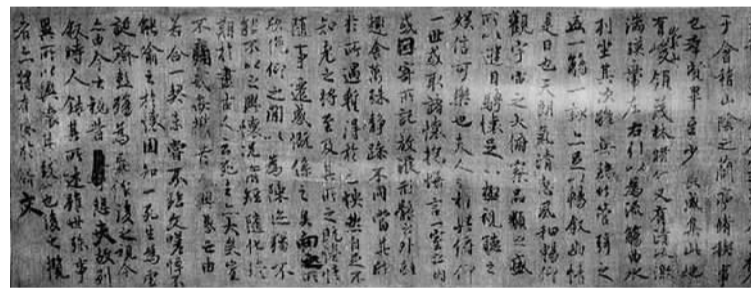 于會稽山陰之蘭亭脩禊事
也羣賢畢至少長咸集此地
有崇山峻領茂林脩竹又有清流激
湍暎帶左右引以為流觴曲水
列坐其次雖無絲竹管弦之
盛一觴一詠亦足以暢敘幽情
是日也天朗氣清惠風和暢仰
觀宇宙之大俯察品類之盛
所以遊目騁懷足以極視聽之
娛信可樂也夫人之相與俯仰
一世或取諸懷抱悟言一室之內
或因寄所託放浪形骸之外雖
趣舍萬殊靜躁不同當其欣
於所遇蹔得於己怏然自足不
知老之將至及其所之既惓情
隨事遷感慨係之矣向之所
欣俛仰之閒以為陳迹猶不
能不以之興懷況脩短隨化終
期於盡古人云死生亦大矣豈
不痛哉每攬昔人興感之由
若合一契未嘗不臨文嗟悼不
能喻之於懷固知一死生為虛
誕齊彭殤為妄作後之視今
亦由今之視昔悲夫故列
敘時人錄其所述雖世殊事
異所以興懷其致一也後之攬
者亦將有感於斯文